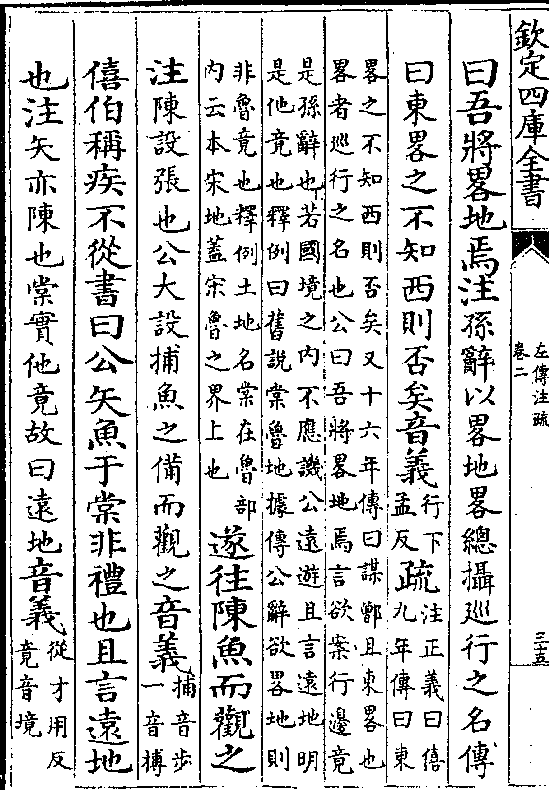 欽定四庫全書
左傳注疏
卷二
三十五
曰吾將畧地焉注孫辭以畧地畧總攝巡行之名傳
曰東畧之不知西則否矣音義行下孟反疏注正義曰僖九年傳曰東
畧之不知西則否矣又十六年傳曰謀鄫且東畧也
畧者巡行之名也公曰吾將畧地焉言欲案行邊竟
是孫辭也若國境之內不應譏公遠遊且言遠地明
是他竟也釋例曰舊說棠魯地據傳公辭欲畧地則
非魯竟也釋例土地名棠在魯部
內云本宋地蓋宋魯之界上也遂往陳魚而觀之
注陳設張也公大設捕魚之備而觀之音義捕音步一音搏
僖伯稱疾不從書曰公矢魚于棠非禮也且言遠地
也注矢亦陳也棠實他竟故曰遠地音義從才用反竟音境